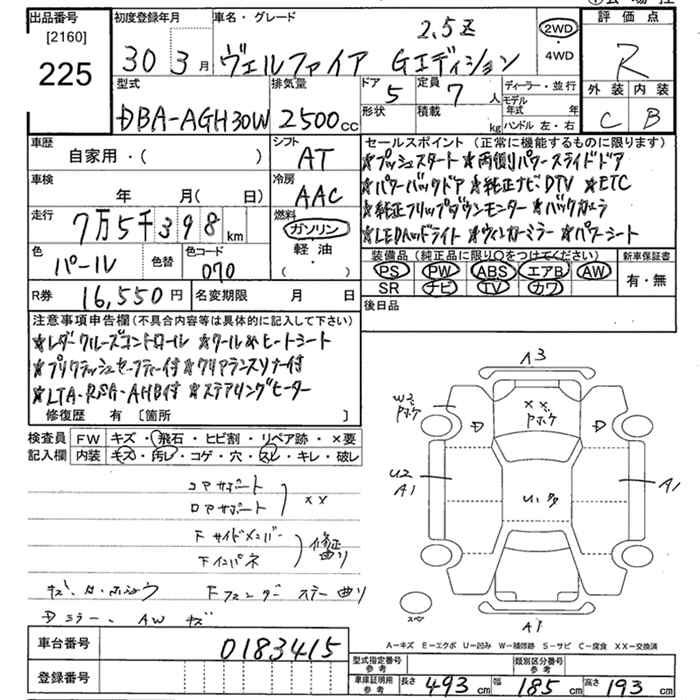 出品番号
[2160]
225
初度登録年月
30 3月
車名・グレード
2.5Z
ヴェルファイア Gエディション
2WD
・
4WD
評価点
R
外装 内装
C B
型式
DBA-AGH30W
排気量
2500cc
ドア
5
定員
7人
形状
積載
kg
ディーラー・並行
モデル年式 年
ハンドル 左・右
車歴
自家用・( )
シフト
AT
車検
年 月( 日)
冷房
AAC
走行
7万5千398km
燃料
ガソリン
軽・油
・( )
色
パール
色替
色コード
070
R券
16,550円
名変期限 月 日
セールスポイント(正常に機能するものに限ります)
★プッシュスタート ★両側パワースライドドア
★パワーバックドア ★純正ナビ・DTV ★ETC
★純正フリップダウンモニター ★バックカメラ
★LEDヘッドライト ★ウィンカーミラー ★パワーシート
装備品(純正品に限り○をつけてください)
PS PW ABS エアB AW
SR ナビ TV カワ
新車保証書
有・無
後日品
注意事項申告欄(不具合内容等は具体的に記入して下さい)
★レダークルーズコントロール ★クール&ヒートシート
★プリクラッシュセーフティー付 ★クリアランスソナー付
★LTA・RSA・AHB付 ★ステアリングヒーター
修復歴 有 〔箇所 〕
検査員記入欄
FW キズ・飛石・ヒビ割・リペア跡・×要
内装 キズ・汚レ・コゲ・穴・スレ・キレ・破レ
コアサポート
ロアサポート
××
Fサイドメンバー
Fインパネ
修正 曲り
Fフェンダー ステー曲り
Dミラー、AWキズ
A3
W2
Pボケ
D
××
Pボケ
D
U2
A1
U・多
A1
スペア
A1
A−キズ E−エクボ U−凹み W−補修跡 S−サビ C−腐食 XX−交換済
車台番号
0183415
登録番号
型式指定番号 参考
類別区分番号 参考
車庫証明用 参考
長さ 493cm 幅 185cm 高さ 193cm